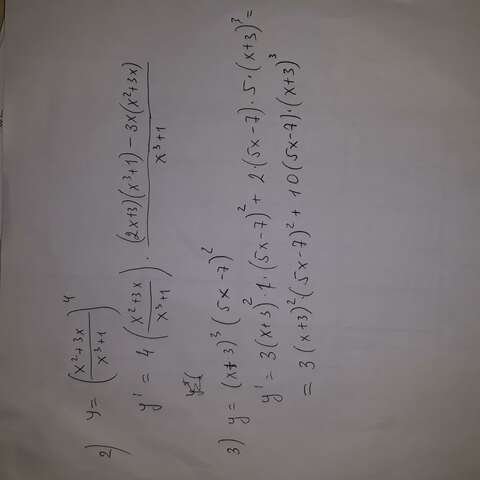 2) y = ((x²+3x)/(x³+1))⁴
y' = 4 ((x²+3x)/(x³+1)) · ((2x+3)(x³+1) − 3x(x²+3x))/(x³+1)
3) y = (x+3)³ (5x−7)²
y' = 3(x+3)² · 1 · (5x−7)² + 2·(5x−7) · 5 · (x+3)³ =
= 3(x+3)² · (5x−7)² + 10(5x−7) · (x+3)³